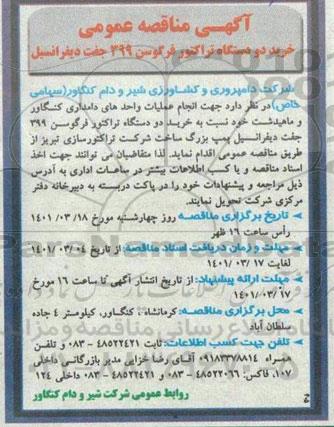 آگهی مناقصه عمومی
خرید دو دستگاه تراکتور فرگوسن ۳۹۹ جفت دیفرانسیل
شرکت دامپروری و کشاورزی شیر و دام کنگاور(سهامی
خاص) در نظر دارد جهت انجام عملیات واحد های دامداری کنگاور
و ماهیدشت خود نسبت به خرید دو دستگاه تراکتور فرگوسن ۳۹۹
جفت دیفرانسیل پمپ بزرگ ساخت شرکت تراکتورسازی تبریز از
طریق مناقصه عمومی اقدام نماید. لذا متقاضیان می توانند جهت اخذ
اسناد مناقصه و یا کسب اطلاعات بیشتر در ساعات اداری به آدرس
ذیل مراجعه و پیشنهادات خود را در پاکت دربسته به دبیرخانه دفتر
مرکزی شرکت تحویل نمایند.
تاریخ برگزاری مناقصه: روز چهارشنبه مورخ ۱۴۰۱/۰۳/۱۸
رأس ساعت ۱۶ ظهر
مهلت و زمان دریافت اسناد مناقصه: از تاریخ ۱۴۰۱/۰۳/۰۴
لغایت ۱۴۰۱/۰۳/۱۷
مهلت ارائه پیشنهاد: از تاریخ انتشار آگهی تا ساعت ۱۶ مورخ
۱۴۰۱/۰۳/۱۷
محل برگزاری مناقصه: کرمانشاه، کنگاور، کیلومتر ۴ جاده
سلطان آباد
تلفن جهت کسب اطلاعات: ثابت ۴۸۵۲۲۴۲۱ - ۰۸۳ و تلفن
همراه ۰۹۱۸۳۳۷۸۸۱۴ آقای رضا خزایی مدیر بازرگانی داخلی
۱۰۷، فاکس: ۴۸۵۲۲۰۶۶ - ۰۸۳ و ۴۸۵۲۲۴۲۱ - ۰۸۳ داخلی ۱۲۴
روابط عمومی شرکت شیر و دام کنگاور